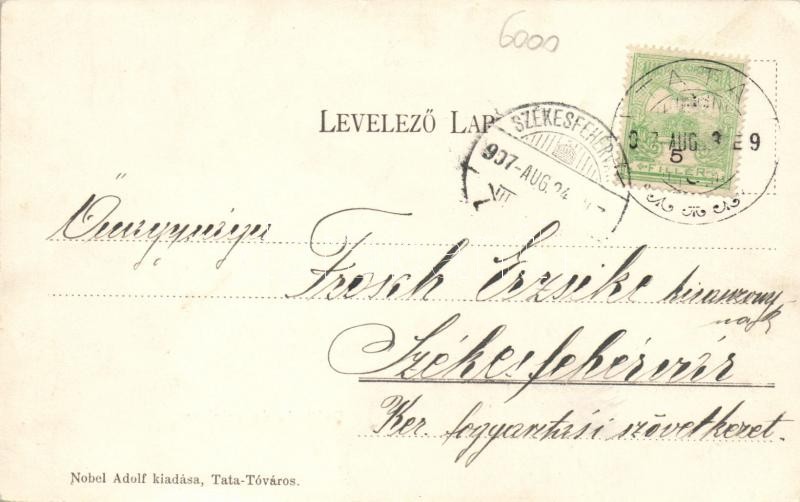 6000
LEVELEZŐ LAP
SZÉKESFEHÉRVÁR
907-AUG.24
TATA
907 AUG 23 E 9
5
FILLÉR
Őnagysága
Frosch Erzsike kisasszony
nak
Székesfehérvár
Ker. fogyasztási szövetkezet.
Nobel Adolf kiadása, Tata-Tóváros.